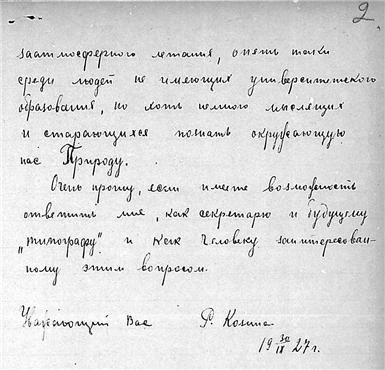 2
заатмосферного летания, опять таки
среди людей не имеющих университетского
образования, но хоть немного мыслящих
и старающихся познать окружающую
нас Природу.
Очень прошу, если имеете возможность
ответить мне, как секретарю и будущему
„типографу" и как человеку заинтересован-
ному этим вопросом.
Уважающий Вас
19 30/IX 27 г.